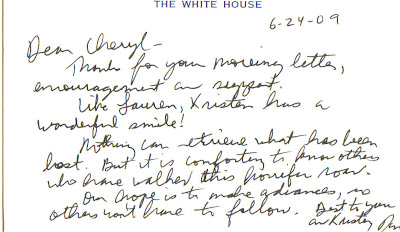 THE WHITE HOUSE
6-24-09
Dear Cheryl-
Thanks for your moving letter,
encouragement an support.
Like Lauren, Kristen has a
wonderful smile!
Nothing can retrieve what has been
lost. But it is comforting to know others
who have walked this horrific road.
Our hope is to make advances, so
others won't have to follow. Best to you
an Kristen